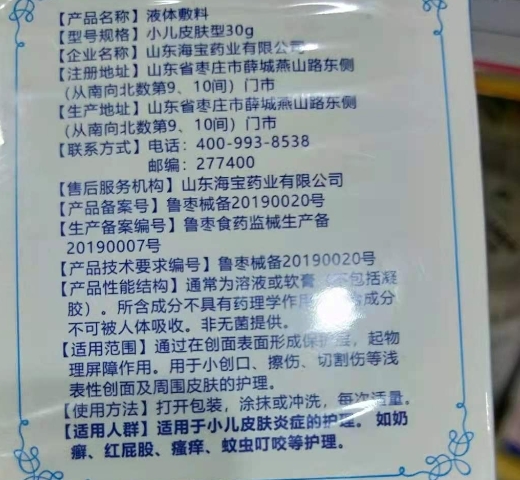 【产品名称】液体敷料
【型号规格】小儿皮肤型30g
【企业名称】山东海宝药业有限公司
【注册地址】山东省枣庄市薛城燕山路东侧
(从南向北数第9、10间)门市
【生产地址】山东省枣庄市薛城燕山路东侧
(从南向北数第9、10间)门市
【联系方式】电话:400-993-8538
邮编:277400
【售后服务机构】山东海宝药业有限公司
【产品备案号】鲁枣械备20190020号
【生产备案编号】鲁枣食药监械生产备
20190007号
【产品技术要求编号】鲁枣械备20190020号
【产品性能结构】通常为溶液或软膏(不包括凝
胶)。所含成分不具有药理学作用 成分
不可被人体吸收。非无菌提供。
【适用范围】通过在创面表面形成保护层,起物
理屏障作用。用于小创口、擦伤、切割伤等浅
表性创面及周围皮肤的护理。
【使用方法】打开包装,涂抹或冲洗,每次适量。
【适用人群】适用于小儿皮肤炎症的护理。如奶
癣、红屁股、瘙痒、蚊虫叮咬等护理。